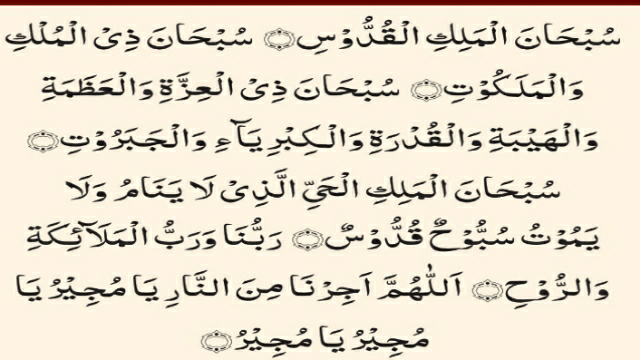 سُبْحَانَ الْمَلِكِ الْقُدُّوْسِ۝ سُبْحَانَ ذِی الْمُلْكِ
وَالْمَلَكُوْتِ۝ سُبْحَانَ ذِی الْعِزَّةِ وَالْعَظَمَةِ
وَالْهَيْبَةِ وَالْقُدْرَةِ وَالْكِبْرِيَآءِ وَالْجَبَرُوْتِ۝
سُبْحَانَ الْمَلِكِ الْحَيِّ الَّذِیْ لَا يَنَامُ وَلَا
يَمُوْتُ سُبُّوْحٌ قُدُّوْسٌ۝ رَبُّنَا وَرَبُّ الْمَلَآئِكَةِ
وَالرُّوْحِ۝ اَللّٰهُمَّ اَجِرْنَا مِنَ النَّارِ يَا مُجِيْرُ يَا
مُجِيْرُ يَا مُجِيْرُ۝